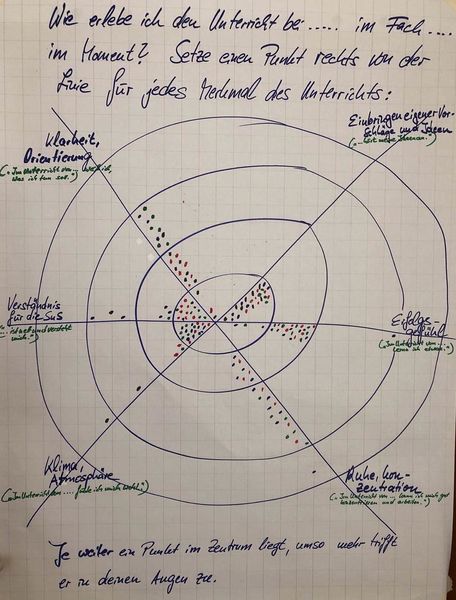 Wie erlebe ich den Unterricht bei ..... im Fach ....
im Moment? Setze einen Punkt rechts von der
Linie für jedes Merkmal des Unterrichts:
Klarheit,
Orientierung
("Im Unterricht von ... weiß ich,
was ich tun soll.")
Einbringen eigener Vor-
schläge und Ideen
Verständnis
für die SuS
Erfolgs-
gefühl
("Im Unterricht von ...
lerne ich etwas.")
Klima,
Atmosphäre
("Im Unterricht von .... fühle ich mich wohl.")
Ruhe, Kon-
zentration
("Im Unterricht von ... kann ich mich gut
konzentrieren und arbeiten.")
Je weiter ein Punkt im Zentrum liegt, umso mehr trifft
er in deinen Augen zu.